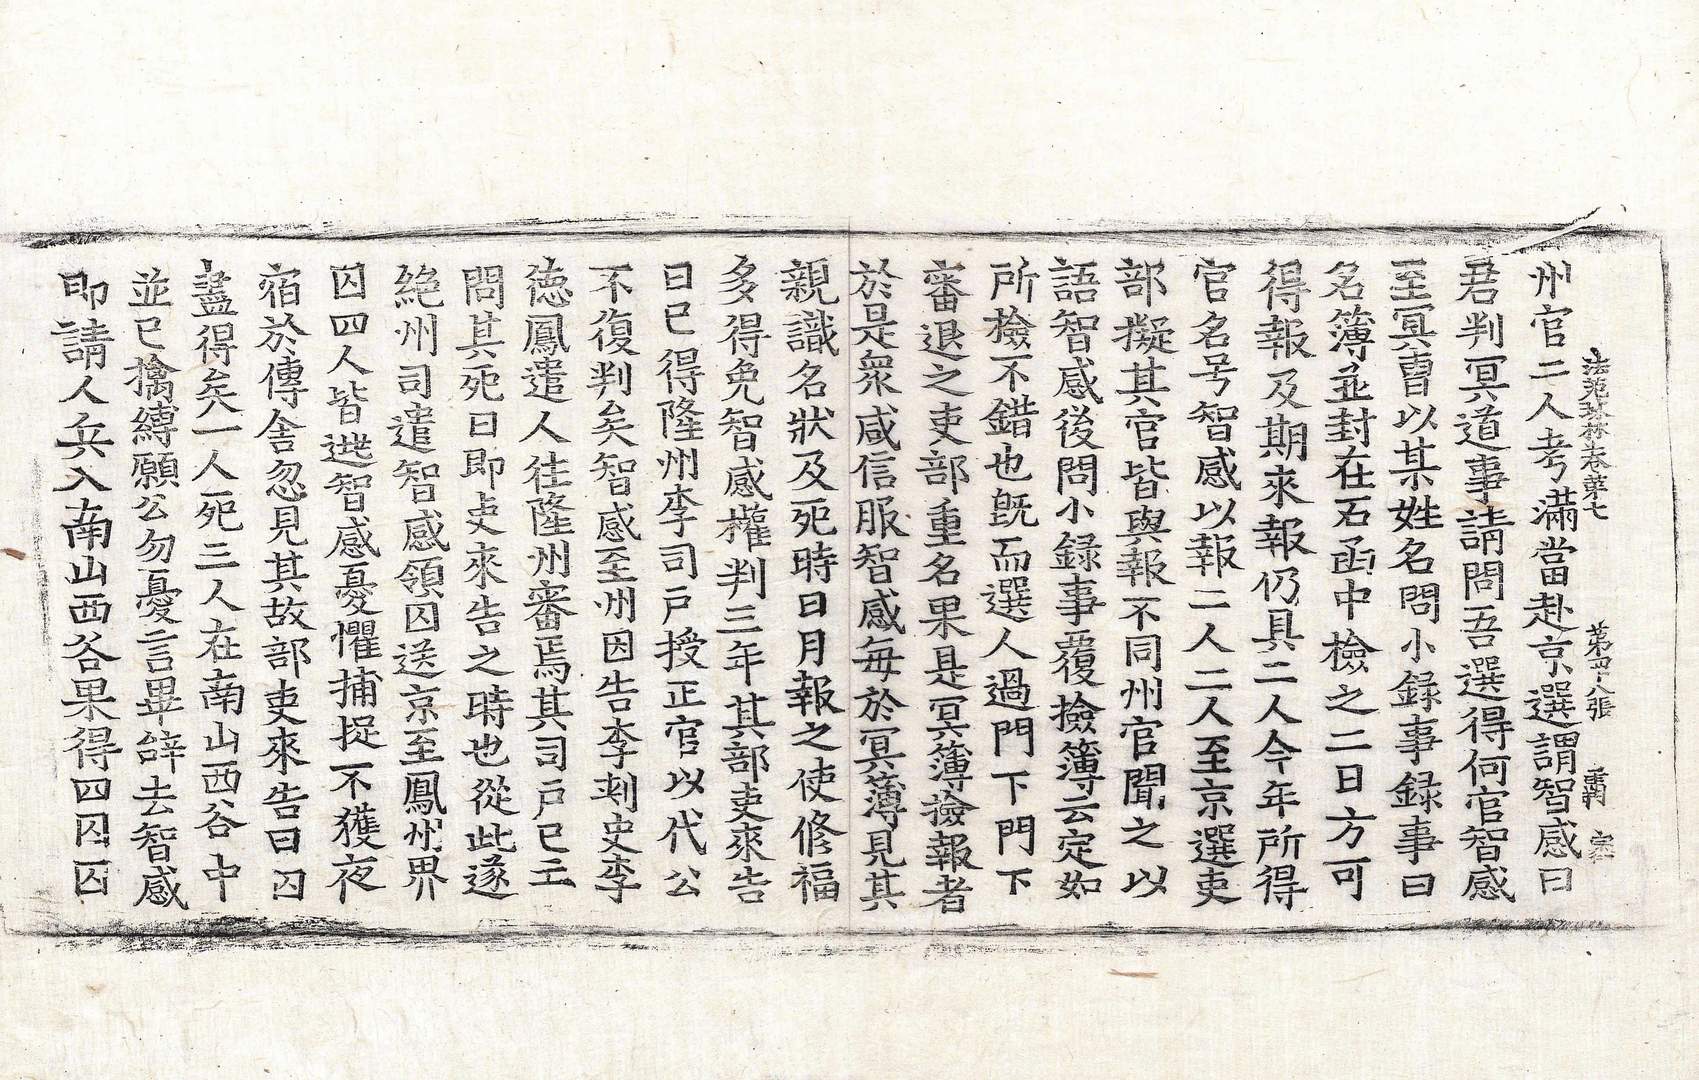 法苑珠林卷第七 第四十八張 重 宗
州官二人考滿當赴京選謂智感曰
君判冥道事請問吾選得何官智感
至冥曹以某姓名問小録事録事曰
名簿並封在石函中檢之二日方可
得報及期來報仍具二人今年所得
官名号智感以報二人二人至京選吏
部擬其官皆與報不同州官聞之以
語智感後問小録事覆撿簿云定如
所撿不錯也旣而選人過門下門下
審退之吏部重名果是冥簿撿報者
於是衆咸信服智感每於冥簿見其
親識名狀及死時日月報之使修福
多得免智感權判三年其部吏來告
曰已得隆州李司户授正官以代公
不復判矣智感至州因告李刾史李
徳鳳遣人往隆州審焉其司户已亡
問其死日即吏來告之時也從此遂
絶州司遣智感領囚送京至鳳州界
囚四人皆逃智感憂懼捕捉不獲夜
宿於傳舎忽見其故部吏來告曰囚
盡得矣一人死三人在南山西谷中
並已擒縛願公勿憂言畢辝去智感
即請人兵入南山西谷果得四囚囚